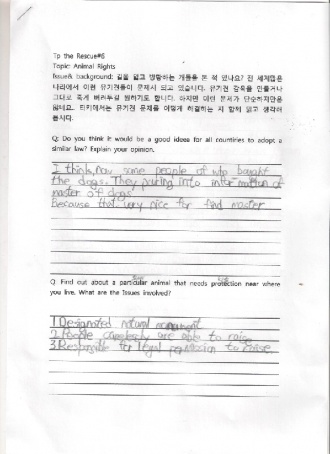 Tp the Rescue#6
Topic: Animal Rights
Issue& background: 길을 잃고 방황하는 개들을 본 적 있나요? 전 세계많은
나라에서 이런 유기견들이 문제시 되고 있습니다. 유기견 감옥을 만들거나
그대로 죽게 버려두길 원하기도 합니다. 하지만 이런 문제가 단순하지만은
않네요. 터키에서는 유기견 문제를 어떻게 해결하는 지 함께 읽고 생각해
봅시다.
Q: Do you think it would be a good ideea for all countries to adopt a
similar law? Explain your opinion.
I think, now some people of who bought
the dogs. They puring into information of
master of dogs
Because that very nice for find master
Q Find out about a particular animal that needs protection near where
you live. What are the Issues involved?
1 Designated natural monument
2 People carelessly are able to raise
3 Responsible for legal permission to raise.